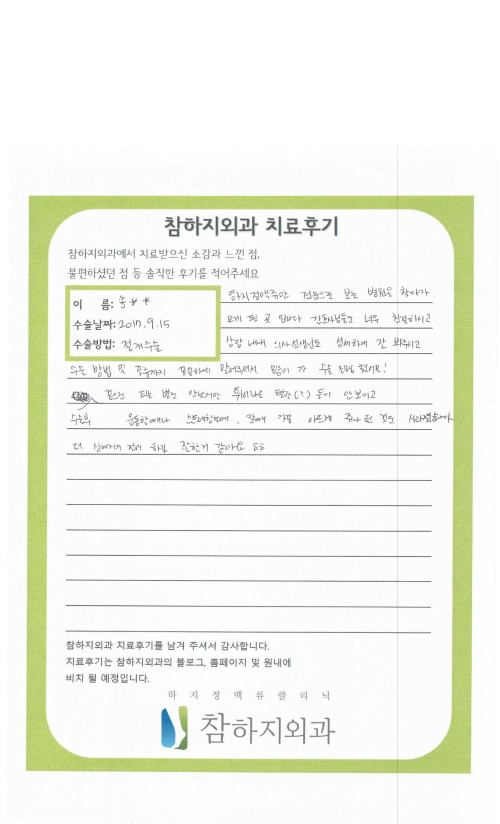 참하지외과 치료후기
참하지외과에서 치료받으신 소감과 느낀 점,
불편하셨던 점 등 솔직한 후기를 적어주세요
이 름: 송**
수술날짜: 2017.9.15
수술방법: 절개수술
하지정맥류만 전문으로 보는 병원을 찾아가
오게 된 곳 입니다 간호사님들도 너무 친절하시고
상담 내내 의사선생님도 섬세하게 잘 봐주시고
수술 방법 및 꼼꼼하게 믿음이 가 수술 했어요!
겉으로 티는 별로 안났지만 튀어나온 혈관(?) 등이 안보이고
수술후 운동할때나 스트레칭할때, 잘때 가끔 아프게 쥐나던 것도 사라졌습니다.
더 심해지기 전에 하길 잘한거 같아요 ㅎㅎ
참하지외과 치료후기를 남겨 주셔서 감사합니다.
치료후기는 참하지외과의 블로그, 홈페이지 및 원내에
비치 될 예정입니다.
하지정맥류클리닉
참하지외과